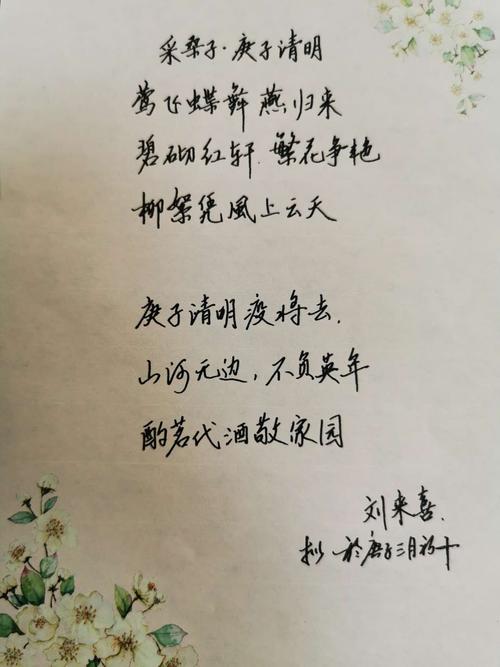 采桑子·庚子清明
莺飞蝶舞燕归来
碧砌红轩.繁花争艳
柳絮凭風上云天
庚子清明疫将去.
山河无边，不负英年
酌茗代酒敬家园
刘来喜.
拟於庚子三月初十